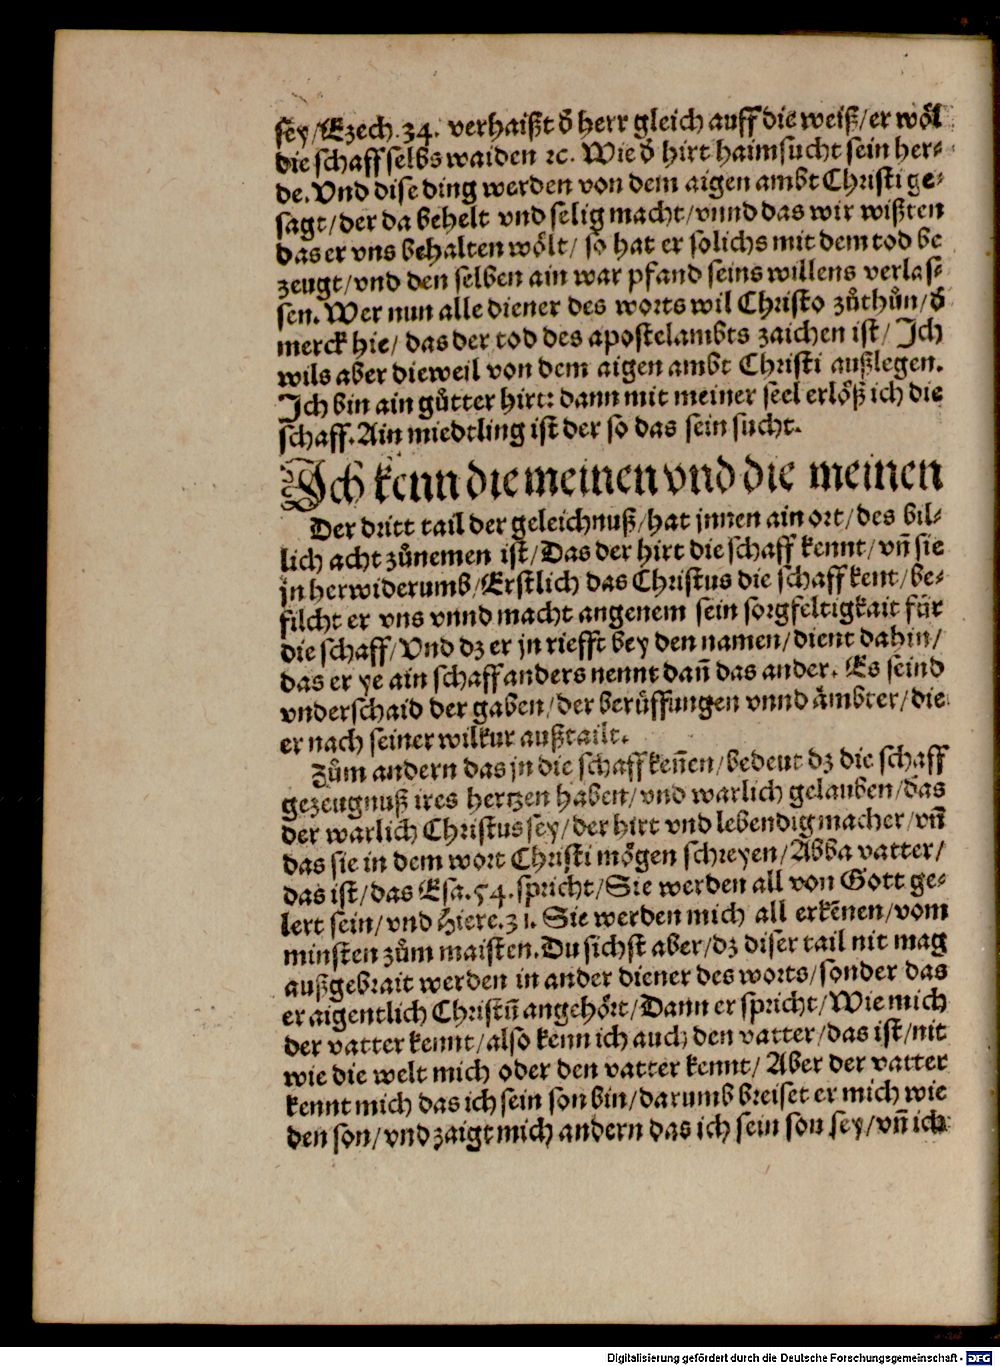 sey/Ezech.34. verhaißt d̄ herr gleich auff die weiß/er wöl
die schaff selbs waiden ꝛc. Wie d̄ hirt haimsucht sein her⸗
de. Vnd dise ding werden von dem aigen ambt Christi ge⸗
sagt/der da behelt vnd selig macht/vnnd das wir wißten
das er vns behalten wölt/ so hat er solichs mit dem tod be
zeugt/vnd den selben ain war pfand seins willens verlas⸗
sen. Wer nun alle diener des worts wil Christo zůthůn/d̄
merck hie/ das der tod des apostelambts zaichen ist/ Ich
wils aber dieweil von dem aigen ambt Christi außlegen.
Ich bin ain gůtter hirt: dann mit meiner seel erlöß ich die
schaff. Ain miedtling ist der so das sein sucht.
Ich kenn die meinen vnd die meinen
Der dritt tail der geleichnuß/hat jnnen ain ort/des bil⸗
lich acht zůnemen ist/Das der hirt die schaff kennt/vñ sie
jn herwiderumb/Erstlich das Christus die schaff kent/be⸗
filcht er vns vnnd macht angenem sein sorgfeltigkait für
die schaff/Vnd dz er jn riefft bey den namen/dient dahin/
das er ye ain schaff anders nennt dañ das ander. Es seind
vnderschaid der gaben/der berůffungen vnnd ämbter/die
er nach seiner wilkur außtailt.
Zům andern das jn die schaff keñen/bedeut dz die schaff
gezeugnuß ires hertzen haben/vnd warlich gelauben/das
der warlich Christus sey/der hirt vnd lebendig macher/vñ
das sie in dem wort Christi mögen schreyen/Abba vatter/
das ist/das Esa.54.spricht/Sie werden all von Gott ge⸗
lert sein/vnd Hiere.31. Sie werden mich all erkēnen/vom
minsten zům maisten. Du sichst aber/dz diser tail nit mag
außgebrait werden in ander diener des worts/sonder das
er aigentlich Christū angehört/Dann er spricht/Wie mich
der vatter kennt/also kenn ich auch den vatter/das ist/nit
wie die welt mich oder den vatter kennt/ Aber der vatter
kennt mich das ich sein son bin/darumb breiset er mich wie
den son/vnd zaigt mich andern das ich sein son sey/vñ ich
Digitalisierung gefördert durch die Deutsche Forschungsgemeinschaft - DFG